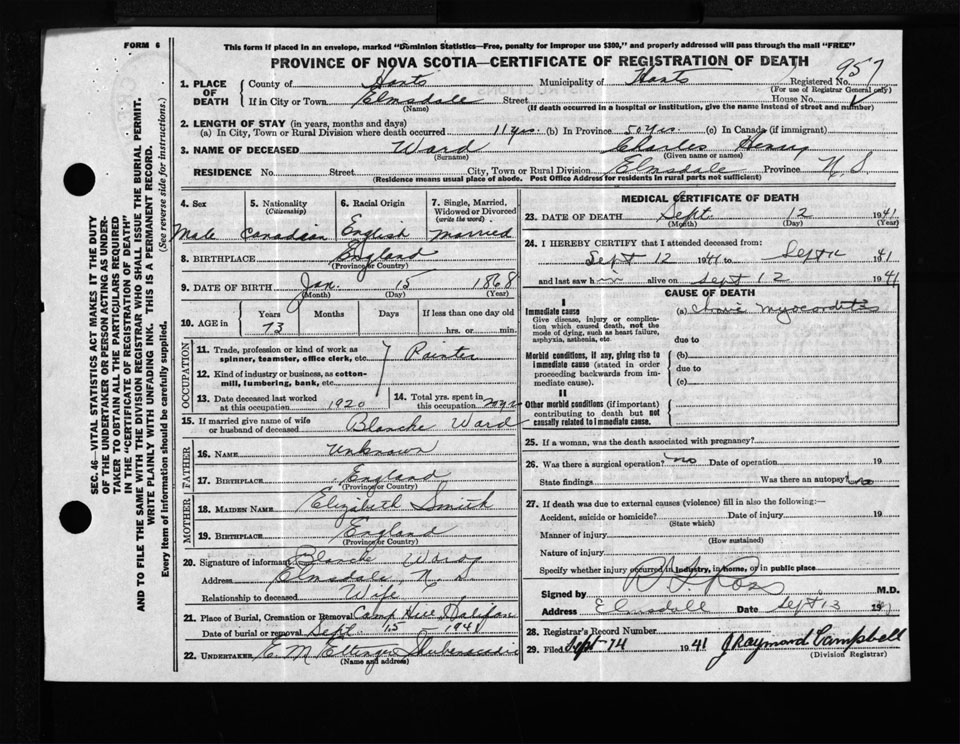 FORM 6
This form if placed in an envelope, marked "Dominion Statistics—Free, penalty for improper use $300," and properly addressed will pass through the mail "FREE"
PROVINCE OF NOVA SCOTIA—CERTIFICATE OF REGISTRATION OF DEATH
1. PLACE OF DEATH
County of Hants Municipality of Hants Registered No. 957
(For use of Registrar General only)
If in City or Town Elmsdale Street House No.
(Name) (If death occurred in a hospital or institution, give the name instead of street and number)
2. LENGTH OF STAY (in years, months and days)
(a) In City, Town or Rural Division where death occurred 11 yrs. (b) In Province 50 yrs. (c) In Canada (if immigrant)
3. NAME OF DECEASED Ward Charles Henry
(Surname) (Given name or names)
RESIDENCE No. Street City, Town or Rural Division Elmsdale Province N S
(Residence means usual place of abode. Post Office Address for residents in rural parts not sufficient)
4. Sex 5. Nationality (Citizenship) 6. Racial Origin 7. Single, Married, Widowed or Divorced (write the word)
Male Canadian English Married
8. BIRTHPLACE England
(Province or Country)
9. DATE OF BIRTH Jan. 15 1868
(Month) (Day) (Year)
10. AGE in Years Months Days If less than one day old
73 hrs. or min.
OCCUPATION
11. Trade, profession or kind of work as spinner, teamster, office clerk, etc. Painter
12. Kind of industry or business, as cotton-mill, lumbering, bank, etc.
13. Date deceased last worked at this occupation 1920
14. Total yrs. spent in this occupation
15. If married give name of wife or husband of deceased Blanche Ward
FATHER
16. NAME Unknown
17. BIRTHPLACE England
(Province or Country)
MOTHER
18. MAIDEN NAME Elizabeth Smith
19. BIRTHPLACE England
(Province or Country)
20. Signature of informant Blanche Ward
Address Elmsdale, N. S.
Relationship to deceased Wife
21. Place of Burial, Cremation or Removal Camp Hill Halifax
Date of burial or removal Sept. 15 1941
22. UNDERTAKER E. M. Ettinger Shubenacadie
(Name and address)
MEDICAL CERTIFICATE OF DEATH
23. DATE OF DEATH Sept. 12 1941
(Month) (Day) (Year)
24. I HEREBY CERTIFY that I attended deceased from:
Sept 12 1941 to Sept 12 1941
and last saw h alive on Sept 12 1941
CAUSE OF DEATH
I
Immediate cause
Give disease, injury or complication which caused death, not the mode of dying, such as heart failure, asphyxia, asthenia, etc.
(a) myocarditis
due to
Morbid conditions, if any, giving rise to immediate cause (stated in order proceeding backwards from immediate cause).
(b)
due to
(c)
II
Other morbid conditions (if important) contributing to death but not causally related to immediate cause.
25. If a woman, was the death associated with pregnancy?
26. Was there a surgical operation? no Date of operation 19
State findings Was there an autopsy? no
27. If death was due to external causes (violence) fill in also the following:—
Accident, suicide or homicide? Date of injury 19
(State which)
Manner of injury
(How sustained)
Nature of injury
Specify whether injury occurred in industry, in home, or in public place
Signed by M.D.
Address Elmsdale Date Sept 13 19
28. Registrar's Record Number
29. Filed Sept 14 1941 J Raymond Campbell
(Division Registrar)
SEC. 46—VITAL STATISTICS ACT MAKES IT THE DUTY
OF THE UNDERTAKER OR PERSON ACTING AS UNDER-
TAKER TO OBTAIN ALL THE PARTICULARS REQUIRED
IN THE "CERTIFICATE OF REGISTRATION OF DEATH"
AND TO FILE THE SAME WITH THE DIVISION REGISTRAR WHO SHALL ISSUE THE BURIAL PERMIT.
WRITE PLAINLY WITH UNFADING INK. THIS IS A PERMANENT RECORD.
Every item of Information should be carefully supplied. (See reverse side for instructions.)